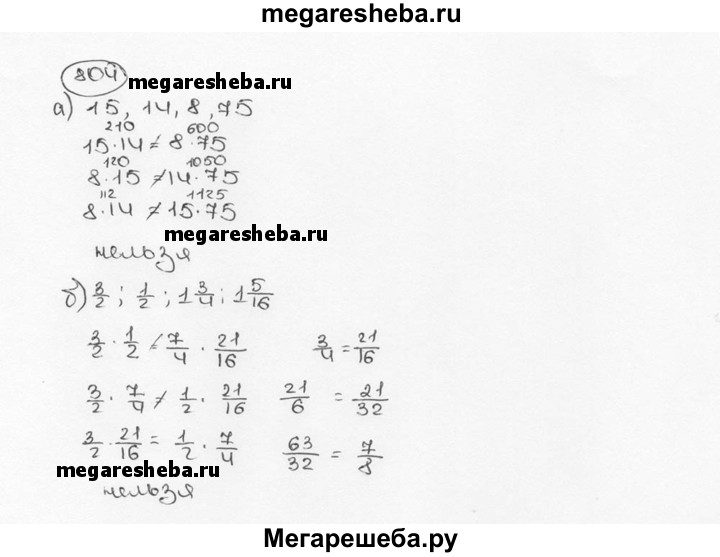 megaresheba.ru
804
megaresheba.ru
а) 15, 14, 8, 75
210 600
15·14 ≠ 8·75
120 1050
8·15 ≠ 14·75
112 1125
8·14 ≠ 15·75
megaresheba.ru
нельзя
б) 3/2 ; 1/2 ; 1 3/4 ; 1 5/16
3/2 · 1/2 ≠ 7/4 · 21/16 3/4 = 21/16
3/2 · 7/4 ≠ 1/2 · 21/16 21/6 = 21/32
3/2 · 21/16 = 1/2 · 7/4 63/32 = 7/8
megaresheba.ru
нельзя
Мегарешеба.ру